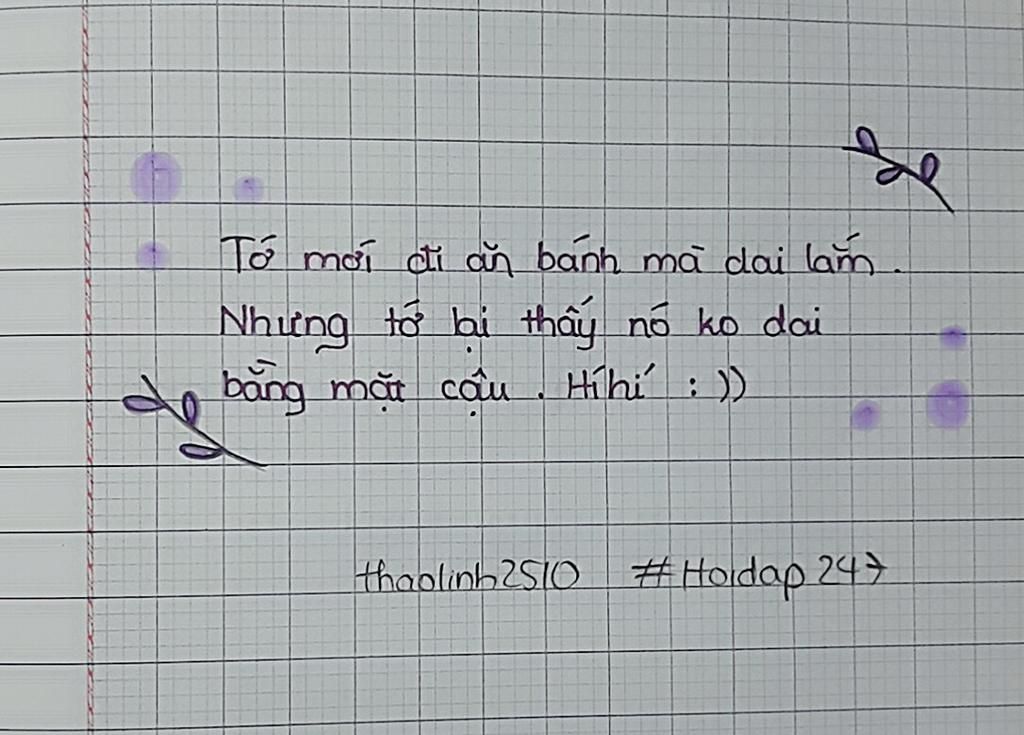 Tớ mới đi ăn bánh mà dai lắm.
Nhưng tớ lại thấy nó ko dai
bằng mặt cậu. Híhí :))
thaolinh2510 #Hoidap247